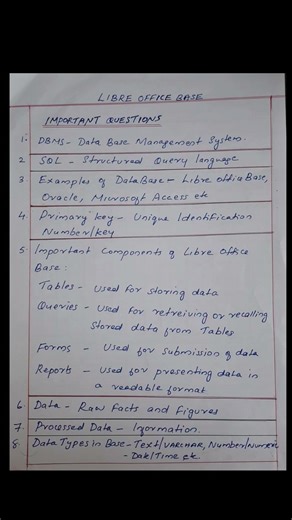 LIBRE OFFICE BASE
IMPORTANT QUESTIONS
1. DBMS - Data Base Management System.
2 SQL - Structured Query language
3 Examples of DataBase - Libre Office Base,
Oracle, Microsoft Access etc
4 Primary key - Unique Identification
Number/key
5. Important Components of Libre Office
Base:
Tables - Used for storing data
Queries - Used for retreiving or recalling
stored data from Tables
Forms - Used for submission of data
Reports - Used for presenting data in
a readable format
6. Data - Raw Facts and Figures
7. Processed Data - Information.
8. Data Types in Base - Text/VARCHAR, Number/Numeric
- Date/Time etc.